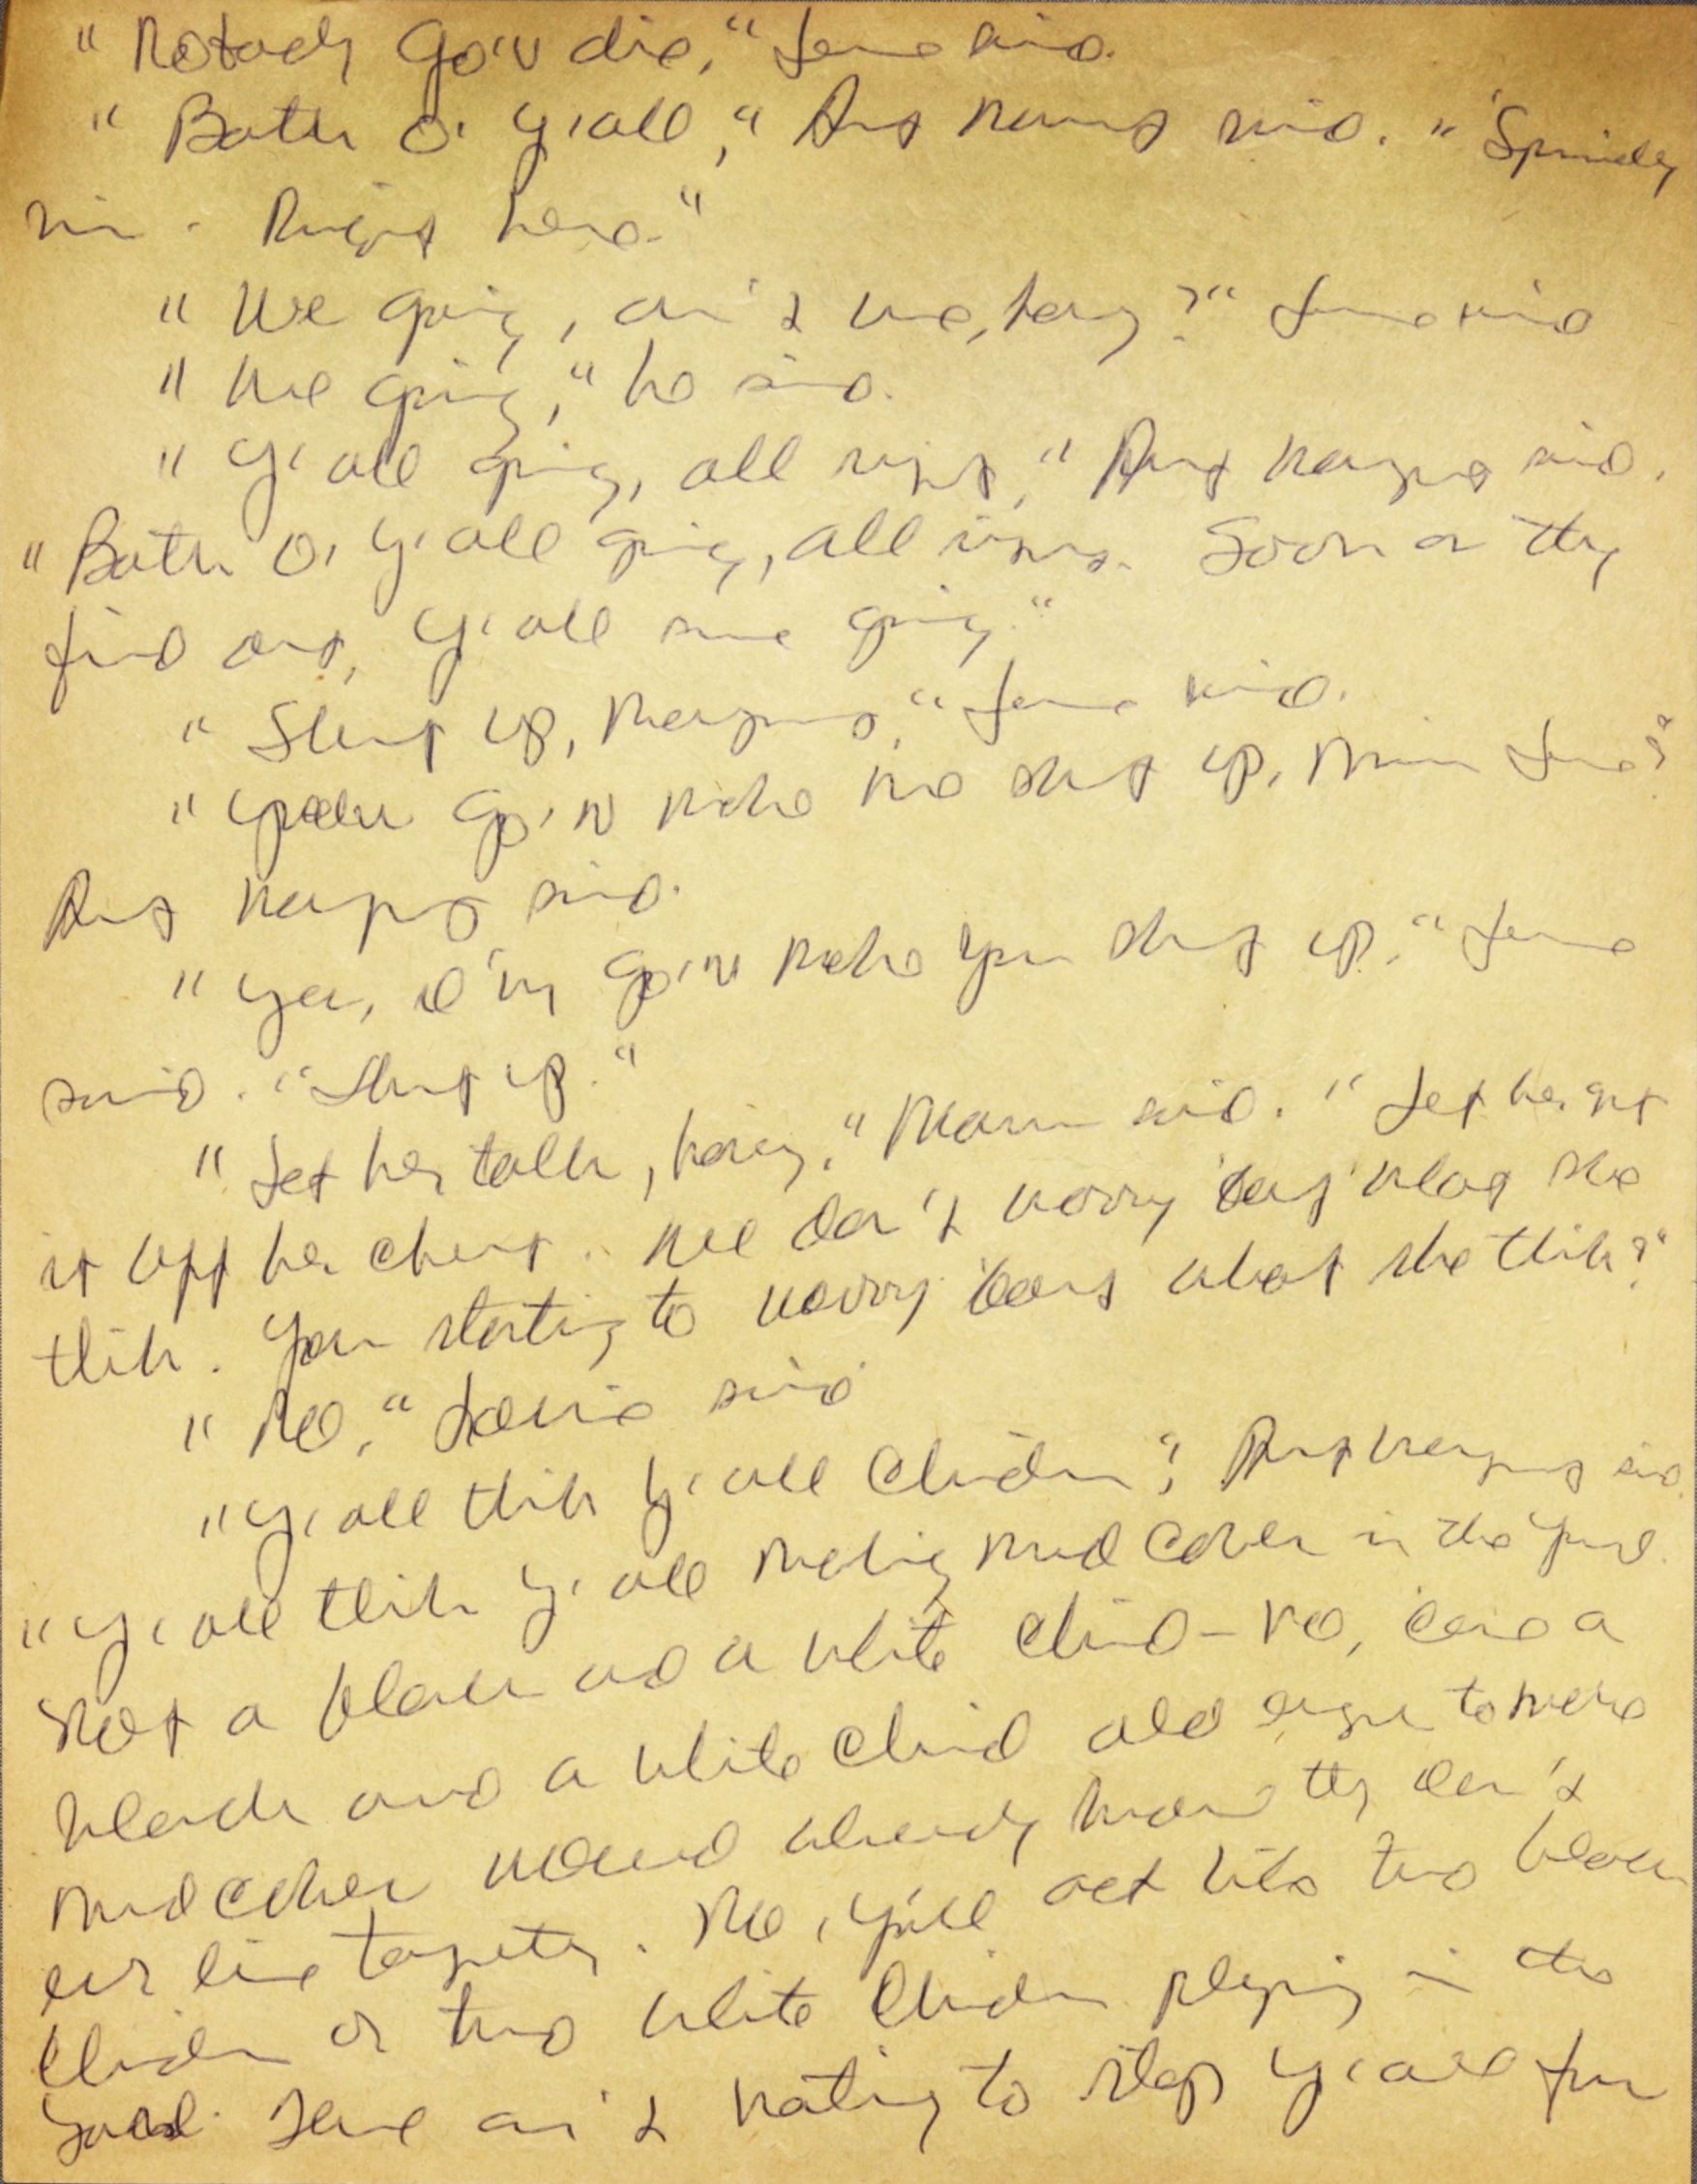 "Nobody go'n die," Louise said.
"Both o' y'all," Aunt Margaret said. "Spiridy
sin. Right here."
"We going, ain't we, honey?" Louise said
"We going," he said.
"Y'all going, all right," Aunt Margaret said.
"Both o' y'all going, all right. Soon as they
find out, y'all sure going."
"Shut up, Margaret," Louise said.
go'n make me shut up, Miss Louise?"
Aunt Margaret said.
"Yes, I'm go'n make you shut up." Louise
said. "Shut up."
"Let her talk, honey," Marcus said. "Let her get
it off her chest. We don't worry 'bout what she
think. You starting to worry 'bout what she think?"
"No," Louise said
"Y'all think y'all children?, Aunt Margaret said.
"Y'all think y'all making mud cakes in the yard.
Not a black and a white child - no, cause a
black and a white child old enough to make
mud cakes would already know they don't
live together. No, y'all act like two black
children or two white children playing in the
yard. There ain't nothing to stop y'all from